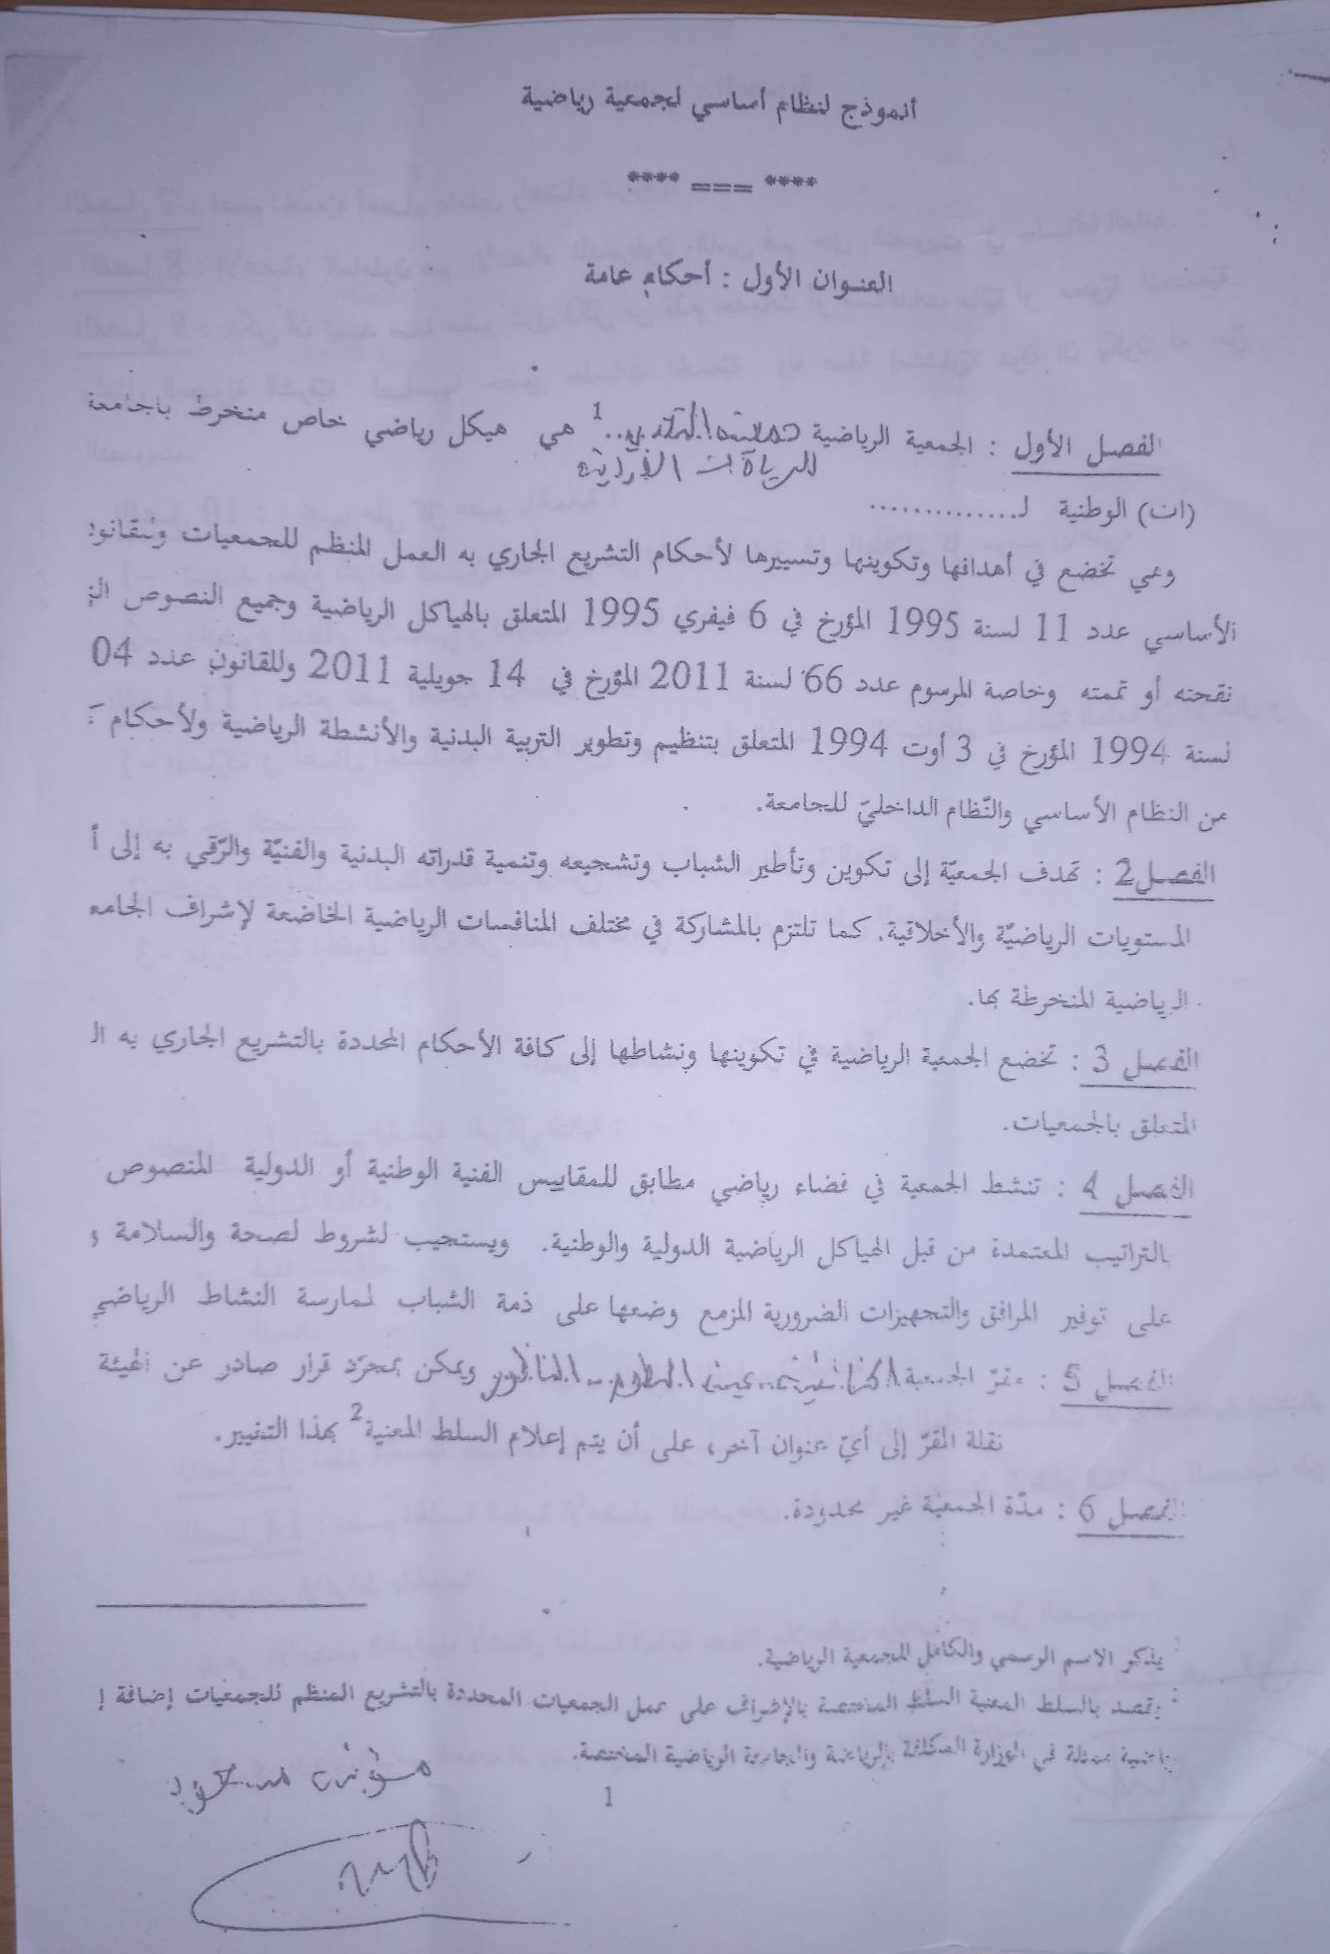 أنموذج لنظام أساسي لجمعية رياضية
**** === ****
العنوان الأول : أحكام عامة
الفصل الأول : الجمعية الرياضية جمعية 1 هي هيكل رياضي خاص منخرط بالجامعة
للرياضات الفردية
(ات) الوطنية لـ..............
وهي تخضع في أهدافها وتكوينها وتسييرها لأحكام التشريع الجاري به العمل المنظم للجمعيات وللقانون
الأساسي عدد 11 لسنة 1995 المؤرخ في 6 فيفري 1995 المتعلق بالهياكل الرياضية وجميع النصوص التي
نقحته أو تممته وخاصة المرسوم عدد 66 لسنة 2011 المؤرخ في 14 جويلية 2011 وللقانون عدد 04
لسنة 1994 المؤرخ في 3 أوت 1994 المتعلق بتنظيم وتطوير التربية البدنية والأنشطة الرياضية ولأحكام
من النظام الأساسي والنّظام الداخليّ للجامعة.
الفصل 2 : تهدف الجمعيّة إلى تكوين وتأطير الشباب وتشجيعه وتنمية قدراته البدنية والفنيّة والرّقي به إلى أ
المستويات الرياضيّة والأخلاقية. كما تلتزم بالمشاركة في مختلف المنافسات الرياضية الخاضعة لإشراف الجامعة
الرياضية المنخرطة بها.
الفصل 3 : تخضع الجمعية الرياضية في تكوينها ونشاطها إلى كافة الأحكام المحددة بالتشريع الجاري به ال
المتعلق بالجمعيات.
الفصل 4 : تنشط الجمعية في فضاء رياضي مطابق للمقاييس الفنية الوطنية أو الدولية المنصوص
بالتراتيب المعتمدة من قبل الهياكل الرياضية الدولية والوطنية. ويستجيب لشروط لصحة والسلامة و
على توفير المرافق والتجهيزات الضرورية المزمع وضعها على ذمة الشباب لممارسة النشاط الرياضي
الفصل 5 : مقرّ الجمعية ويمكن بمجرّد قرار صادر عن الهيئة
نقلة المقرّ إلى أيّ عنوان آخر، على أن يتم إعلام السلط المعنية 2 بهذا التغيير.
الفصل 6 : مدّة الجمعية غير محدودة.
يذكر الاسم الرسمي والكامل للجمعية الرياضية.
يقصد بالسلط المعنية السلط المختصة بالإشراف على عمل الجمعيات المحددة بالتشريع المنظم للجمعيات إضافة إ
ممثلة في الوزارة المكلفة بالرياضة والجامعة الرياضية المختصة.
1